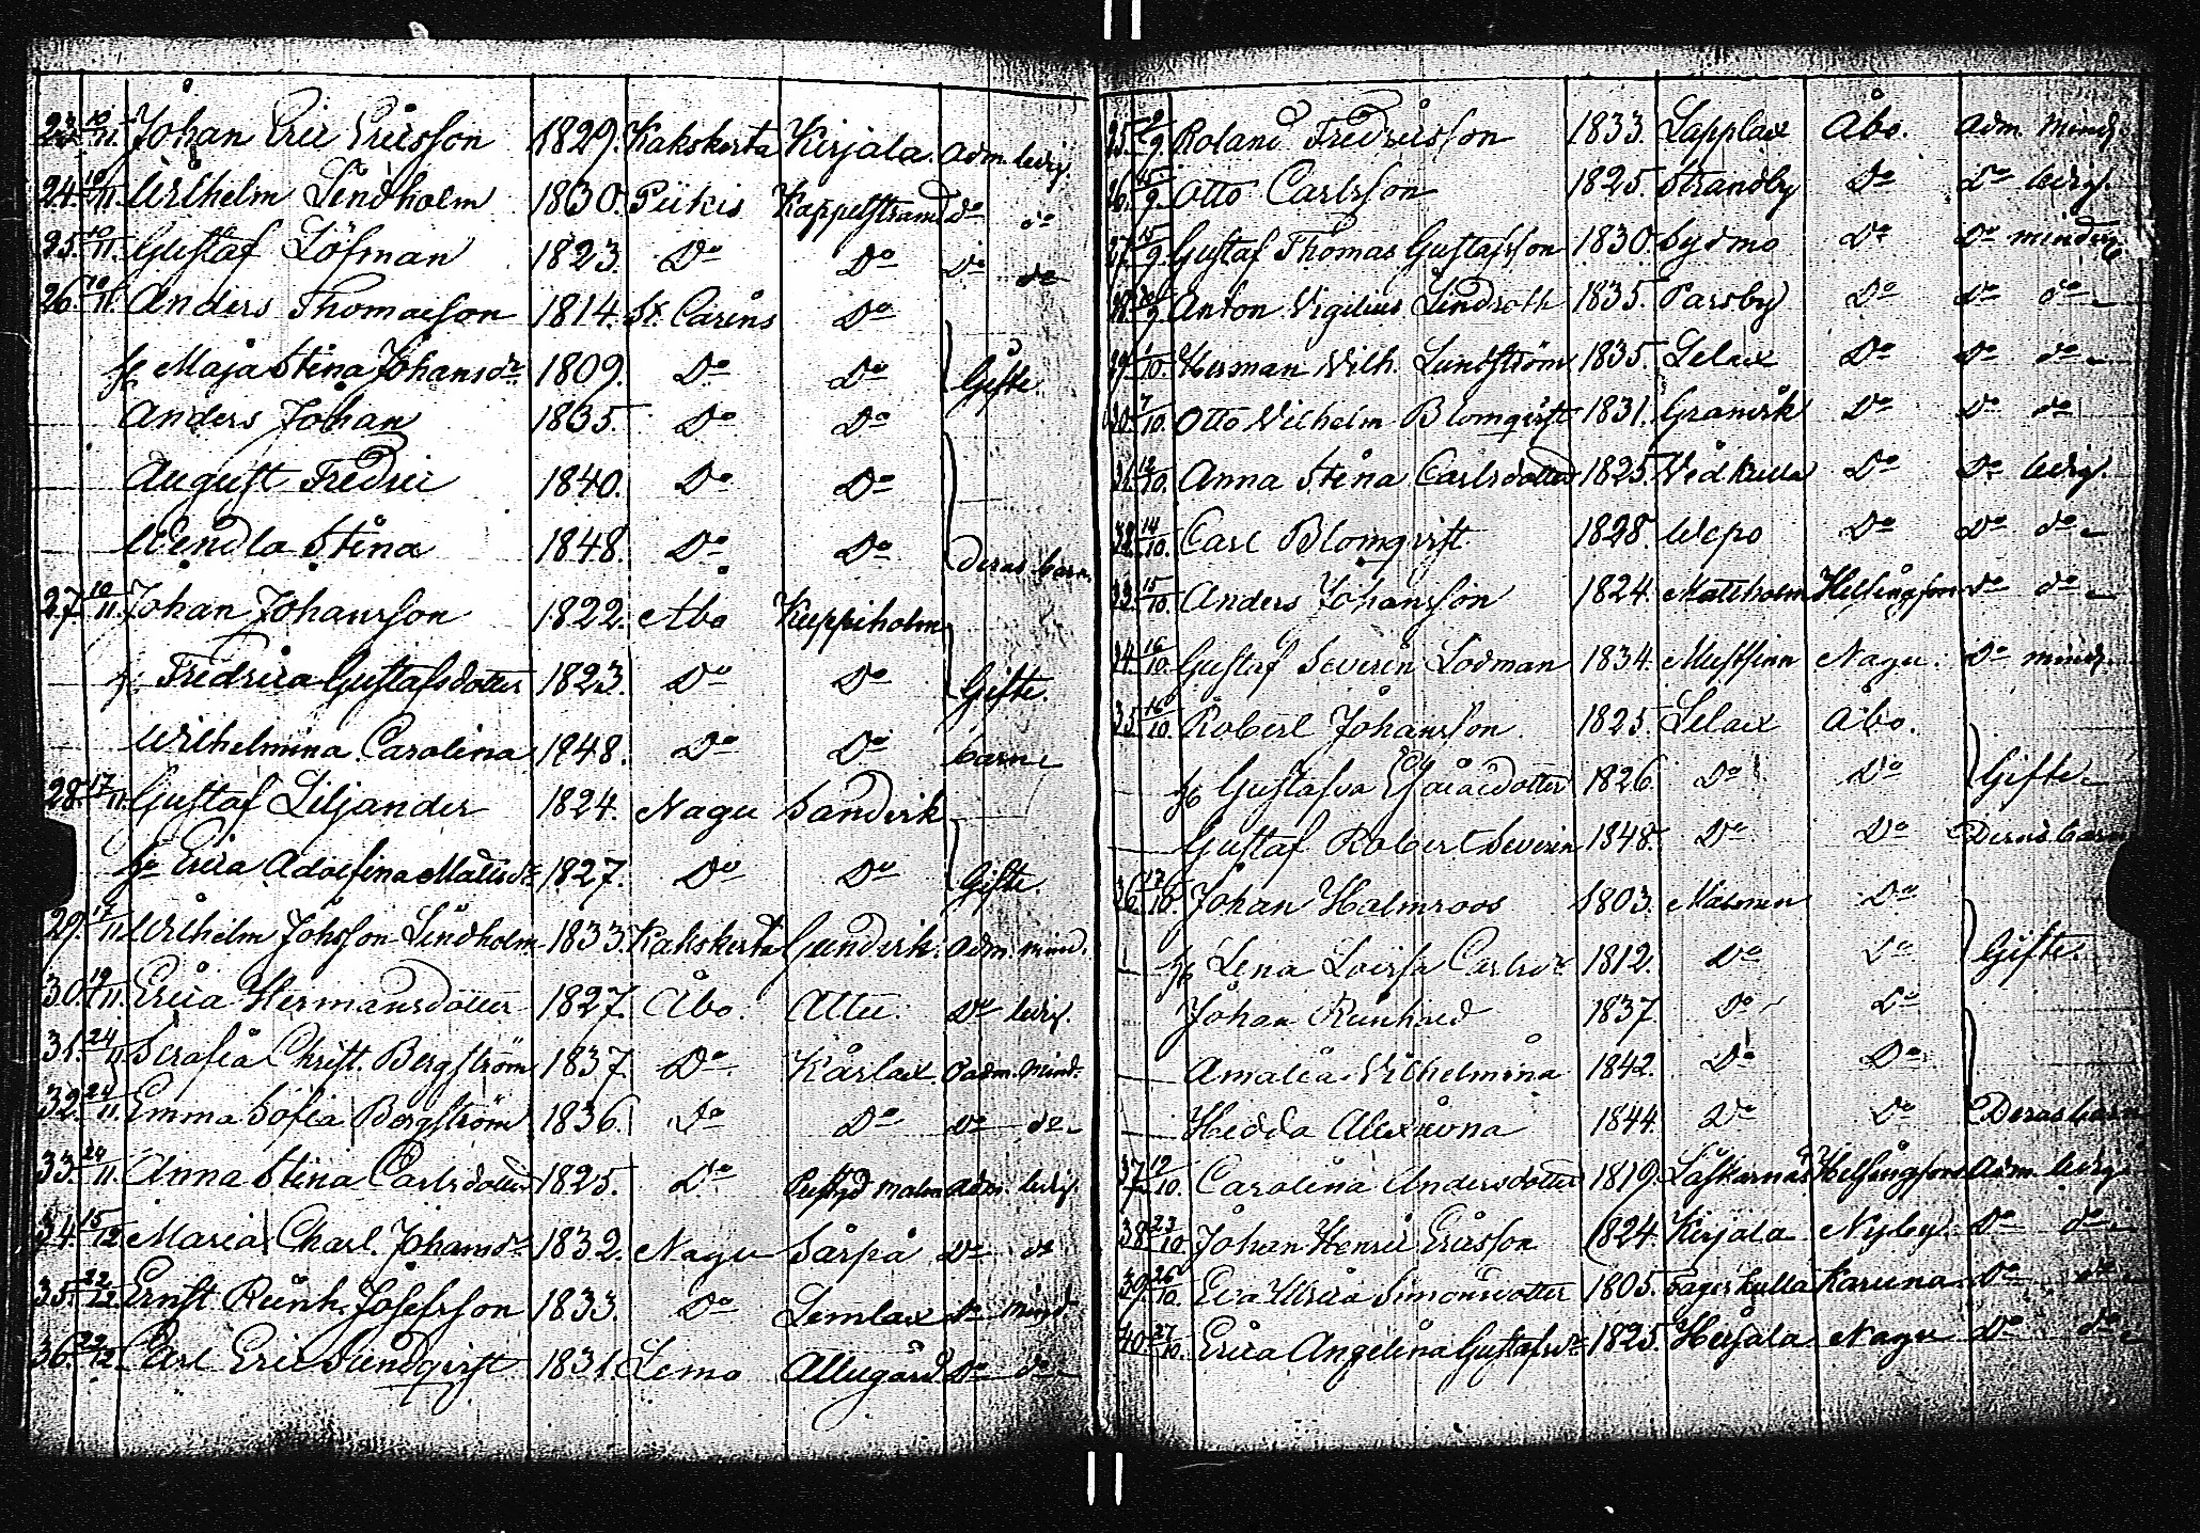 23. 10/11. Johan Eric Ericsson 1829. Kakskerta Kirjala. Adm. ledig.
24. 10/11. Wilhelm Lindholm 1830. Piikis Kappelstrand do do
25. 10/11. Gustaf Löfman 1823. Do Do Do do
26. 10/11. Anders Thomasson 1814. St. Carins Do
h. Maja Stina Johansdr 1809. Do Do Gifte.
Anders Johan 1835. Do Do
August Fredric 1840. Do Do
Wendla Stina 1848. Do Do deras barn
27. 10/11. Johan Johansson 1822. Åbo Kuppiholm
h. Fredrica Gustafsdotter 1823. Do Do Gifte.
Wilhelmina Carolina 1848. Do Do barn
28. 17/11. Gustaf Liljander 1824. Nagu Sandvik
h. Erica Adolfina Matsdr 1827. Do Do Gifte.
29. 17/11. Wilhelm Johsson Lindholm 1833. Kakskerta Gundvik. Adm. mind.
30. 19/11. Erica Hermansdotter 1827. Åbo. Attu. Do ledig.
31. 24/11. Serafia Christ. Bergström 1837. Do Kårlax. Oadm. mind.
32. 24/11. Emma Sofia Bergström 1836. Do Do Do do
33. 24/11. Anna Stina Carlsdotter 1825. Do malm Adm. ledig.
34. 15/12. Maria Charl. Johansdr 1832. Nagu Sårpå Do do
35. 22/12. Ernst Reinh. Josefsson 1833. Do Lemlax Do mind
36. 22/12. Carl Eric Sundqvist 1831. Lemo Allugård Do do
25. 2/9. Roland Fredricsson 1833. Lapplax Åbo. Adm. mindr.
26. 15/9. Otto Carlsson 1825. Strandby Do Do ledig.
27. 15/9. Gustaf Thomas Gustafsson 1830. Sydmo Do Do mindrig
28. /9. Anton Vigilius Lindroth 1835. Parsby Do Do do
29. 1/10. Herman Wilh. Lundström 1835. Lelax Do Do do
30. 7/10. Otto Wilhelm Blomqvist 1831. Granvik Do Do do
31. 12/10. Anna Stina Carlsdotter 1825. Vidkulla Do Do ledig.
32. 14/10. Carl Blomqvist 1828. Wepo Do Do do
33. 15/10. Anders Johansson 1824. Mattholm Helsingfors Do do
34. 16/10. Gustaf Severin Lodman 1834. Mustfinn Nagu. Do mindr.
35. 16/10. Robert Johansson. 1825. Lelax Åbo.
h. Gustafva 1826. Do Do Gifte
Gustaf Robert Severin 1848. Do Do Deras barn
36. 17/10. Johan Halmroos 1803. Malmen Do
h. Lena Lovisa Carlsdr 1812. Do Do Gifte.
Johan Reinhard 1837. Do Do
Amalia Vilhelmina 1842. Do Do
Hedda Alexandrina 1844. Do Do Deras barn
37. 12/10. Carolina Andersdotter 1819. Låskarnäs Helsingfors Adm. ledig
38. 23/10. Johan Henric Ericsson 1824. Kirjala Nyby Do do
39. 26/10. Eva Ulrica Simonsdotter 1805. Fagerkulla Karuna Do do
40. 27/10. Erica Angelina Gustafsdr 1825. Heisala Nagu Do do